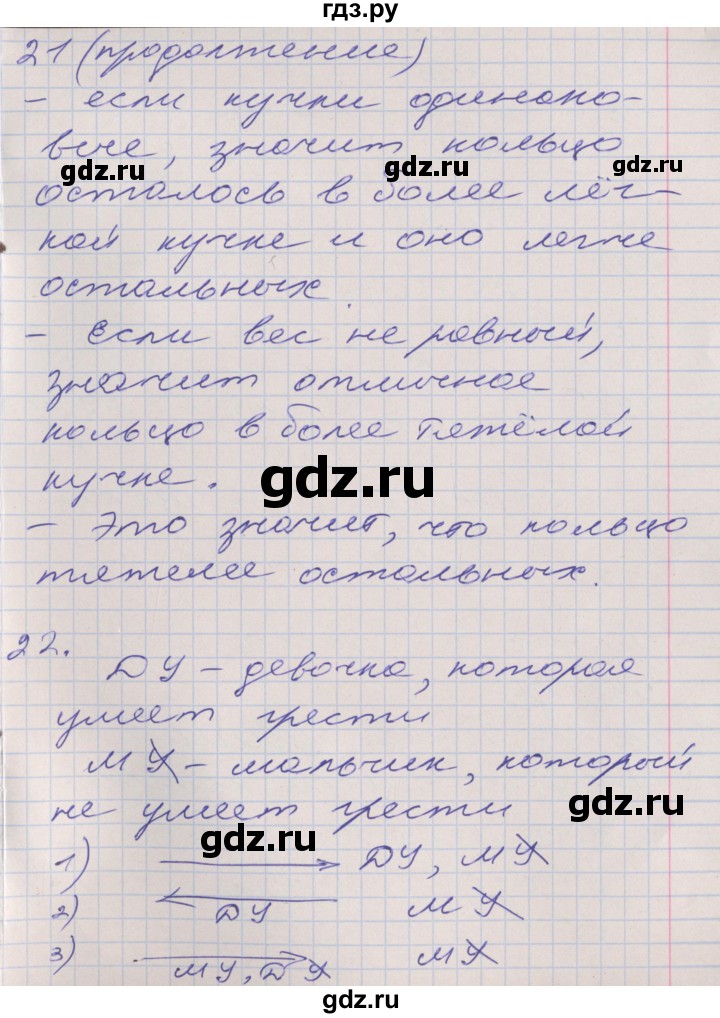 гдз.ру
21 (продолжение)
- если кучки одинако-
вые, значит кольцо
gdz.ru gdz.ru gdz.ru
осталось в более лёг-
кой кучке и оно легче
остальных.
- Если вес не равный,
значит отличное
кольцо в более тяжёлой
gdz.ru
кучке.
- Это значит, что кольцо
тяжелее остальных.
22.
ДУ - девочка, которая
умеет грести
МУ - мальчик, который
не умеет грести
gdz.ru
gdz.ru
1) → ДУ, МУ
2) ← ДУ МУ
3) → МУ, ДУ МУ
gdz.ru